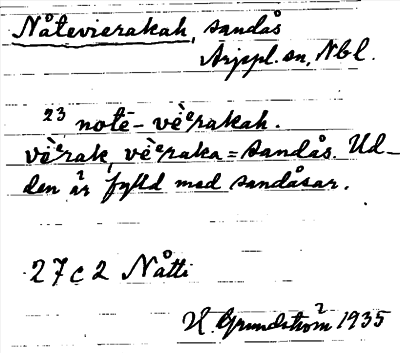 Nåtevierakah, sandås
Arjepl. sn, Nbl.
23 notē- vèᵉrakah.
vèᵉrak, vèᵉraka = sandås. Ud-
den är fylld med sandåsar.
27c2 Nåtti
H. Grundström 1935